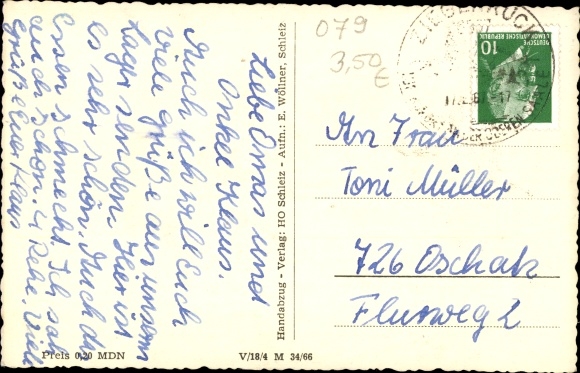 Liebe Omas und
Onkel Klaus.
Auch ich will Euch
viele Grüße aus unserm
Lager senden. Hier ist
es sehr schön. Auch das
Essen schmeckt. Ich sah
auch schon 4 Rehe. Viele
Grüße Euer Klaus
Preis 0,20 MDN
V/18/4 M 34/66
Handabzug - Verlag: HO Schleiz - Aufn.: E. Wöllner, Schleiz
079
3,50
€
ZIEGENRÜCK
DEUTSCHE
DEMOKRATISCHE REPUBLIK
10
An Frau
Toni Müller
726 Oschatz
Flurweg 2